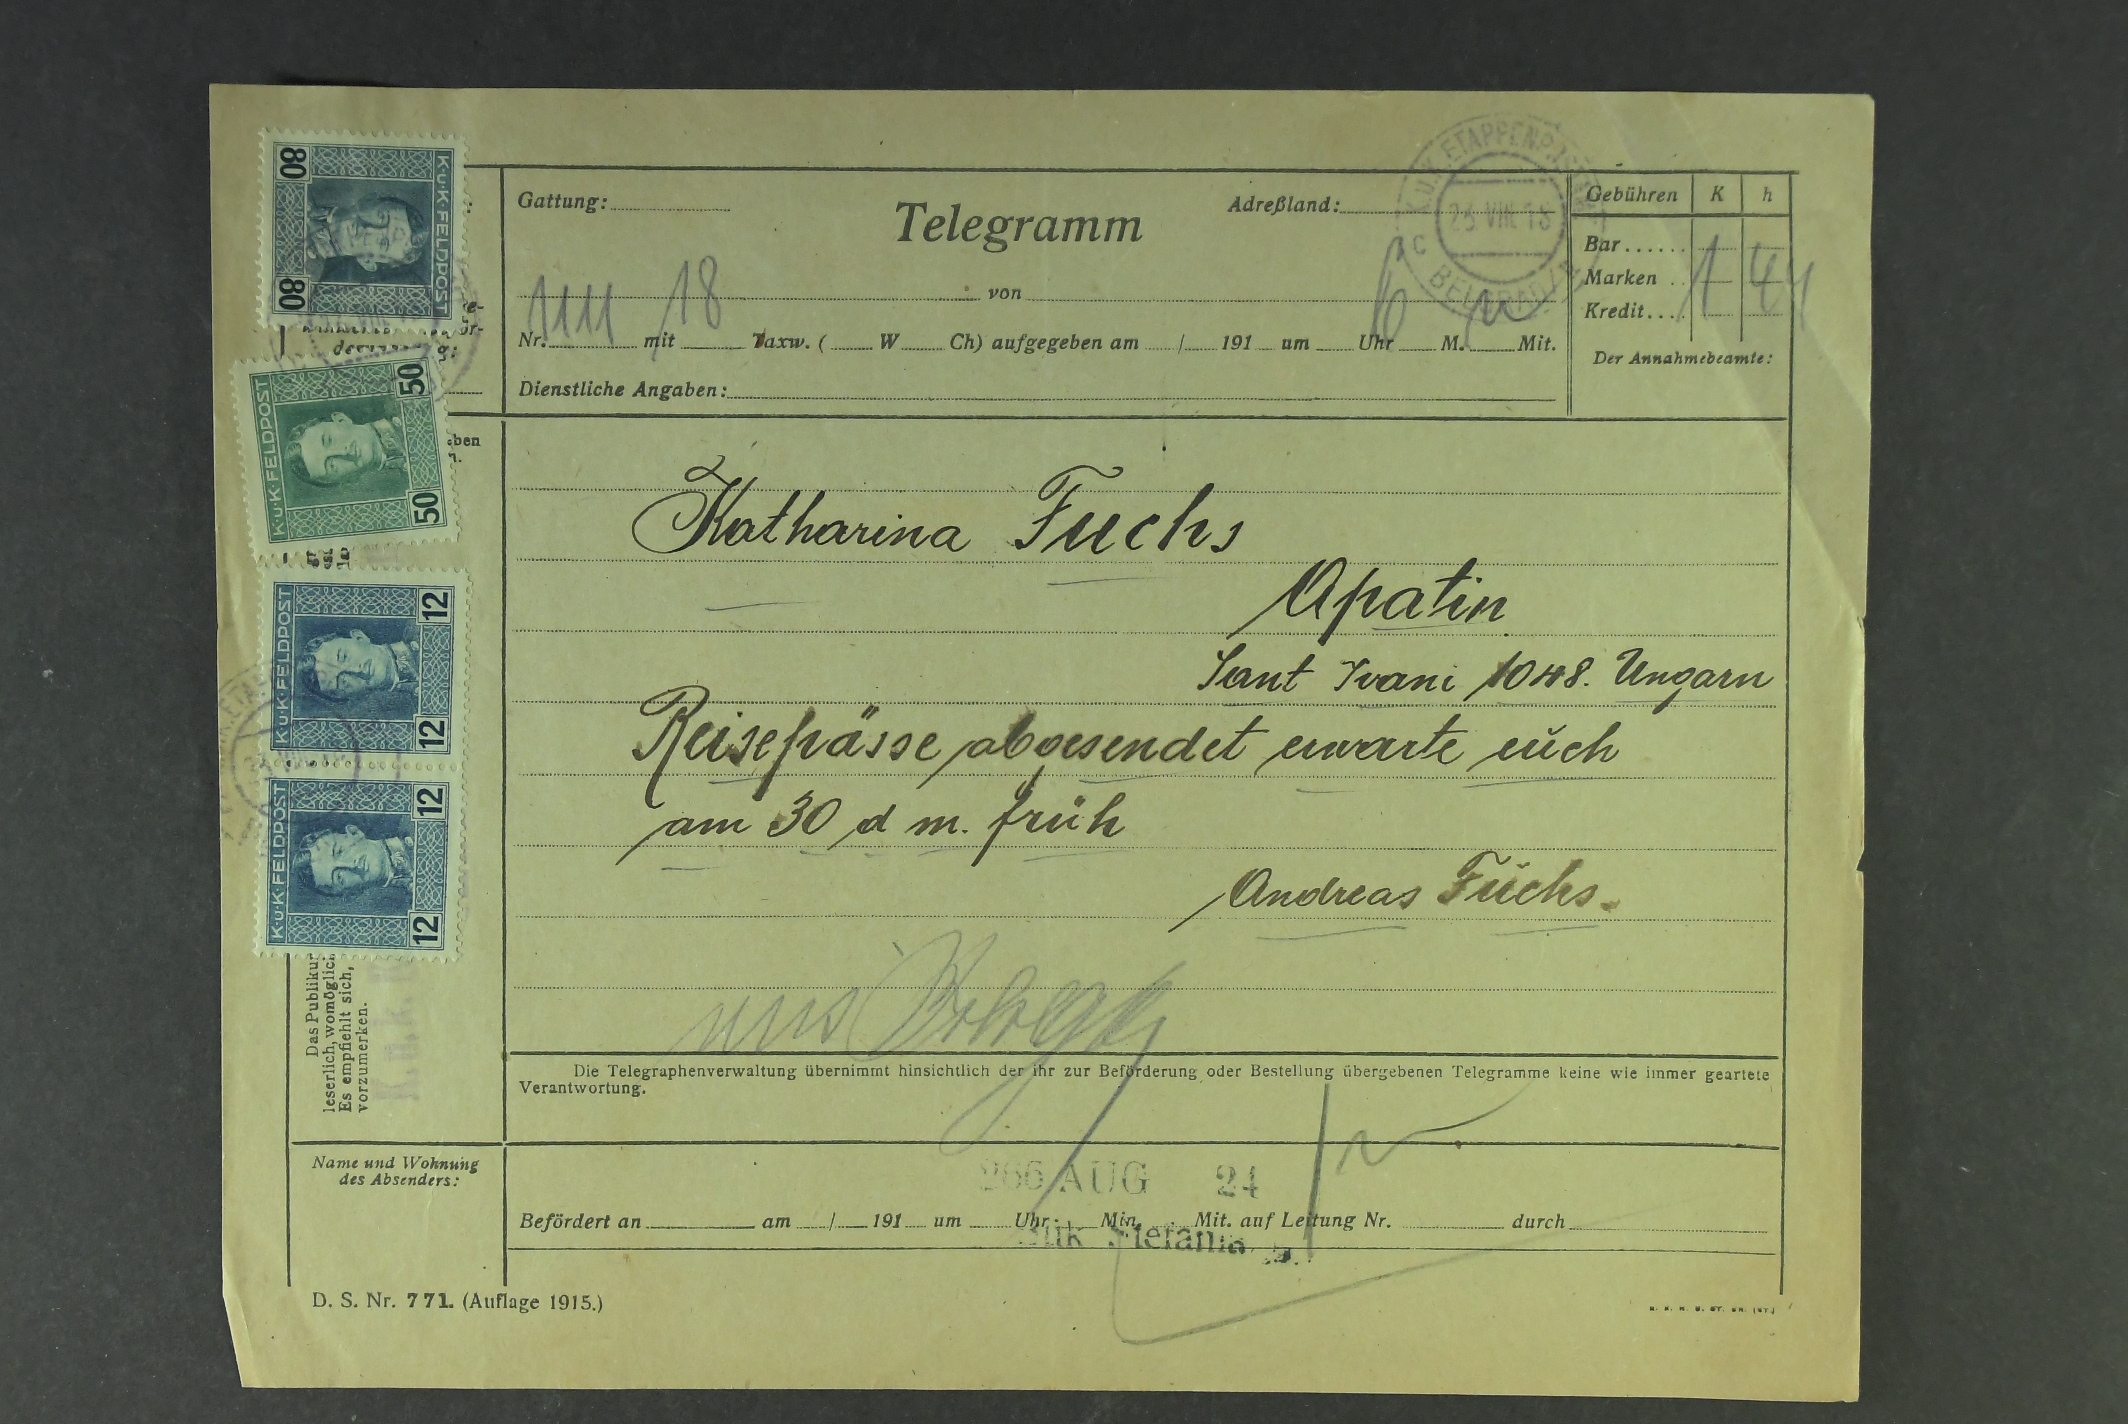 80 80 K·u·K·FELDPOST
50 50 K·u·K·FELDPOST
12 12 K·u·K·FELDPOST
12 12 K·u·K·FELDPOST
Gattung:
Telegramm
Adreßland:
K.U.K. ETAPPENPOSTAMT
23 VIII 18
C BELGRAD
Gebühren K h
Bar......
Marken ..
Kredit....
1 44
Der Annahmebeamte:
von
1111 18
Nr. mit Taxw. ( W Ch) aufgegeben am / 191 um Uhr M. Mit.
Dienstliche Angaben:
Katharina Fuchs
Apatin
Sant Ivani 1048. Ungarn
Reisepässe abgesendet erwarte euch
am 30 d m. früh
Andreas Fuchs.
Das Publikum
leserlich, womöglich
Es empfiehlt sich,
vorzumerken.
Die Telegraphenverwaltung übernimmt hinsichtlich der ihr zur Beförderung oder Bestellung übergebenen Telegramme keine wie immer geartete
Verantwortung.
Name und Wohnung
des Absenders:
266 AUG 24
Befördert an am / 191 um Uhr Min. Mit. auf Leitung Nr. durch
D. S. Nr. 771. (Auflage 1915.)